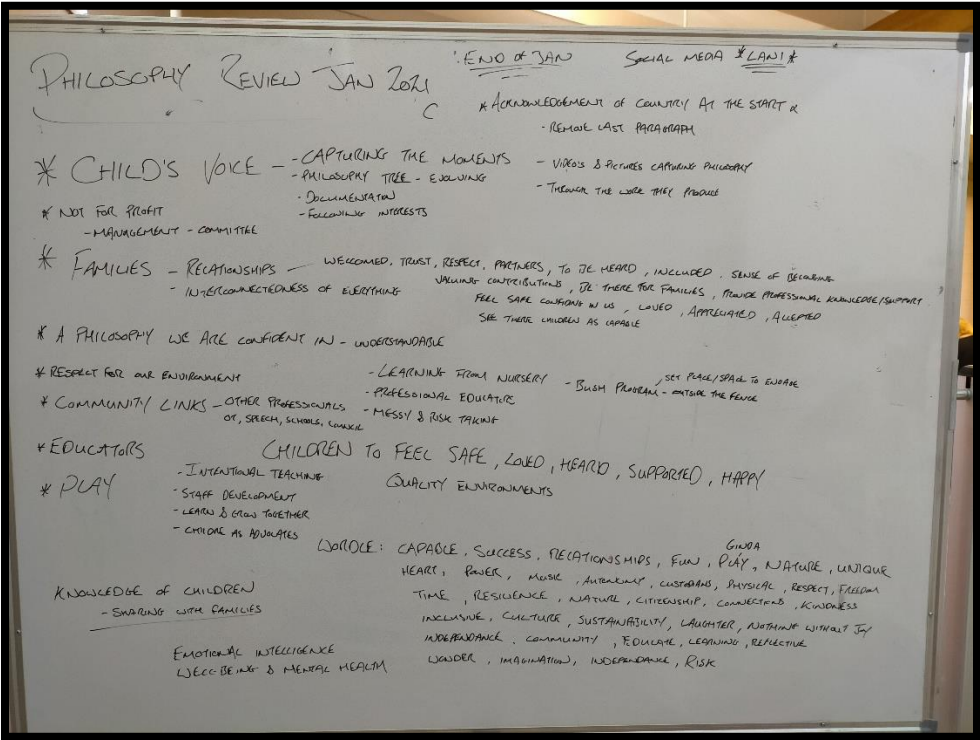 PHILOSOPHY REVIEW JAN 2021
: END OF JAN
SOCIAL MEDIA *LANI*
* ACKNOWLEDGEMENT OF COUNTRY AT THE START
- REMOVE LAST PARAGRAPH
* CHILD'S VOICE - - CAPTURING THE MOMENTS
- PHILOSOPHY TREE - EVOLVING
- DOCUMENTATION
- FOLLOWING INTERESTS
- VIDEO'S & PICTURES CAPTURING PHILOSOPHY
- THROUGH THE WORK THEY PRODUCE
* NOT FOR PROFIT
- MANAGEMENT - COMMITTEE
* FAMILIES - RELATIONSHIPS - WELCOMED, TRUST, RESPECT, PARTNERS, TO BE HEARD, INCLUDED, SENSE OF BELONGING
- INTERCONNECTEDNESS OF EVERYTHING
VALUING CONTRIBUTIONS, BE THERE FOR FAMILIES, PROVIDE PROFESSIONAL KNOWLEDGE/SUPPORT
FEEL SAFE CONFIDING IN US, LOVED, APPRECIATED, ACCEPTED
SEE THERE CHILDREN AS CAPABLE
* A PHILOSOPHY WE ARE CONFIDENT IN - UNDERSTANDABLE
* RESPECT FOR OUR ENVIRONMENT
- LEARNING FROM NURSERY
- PROFESSIONAL EDUCATORS
- MESSY & RISK TAKING
- BUSH PROGRAM - OUTSIDE THE FENCE
, SET PLACE/SPACE TO ENGAGE
* COMMUNITY LINKS - OTHER PROFESSIONALS
OT, SPEECH, SCHOOLS, COUNCIL
* EDUCATORS
CHILDREN TO FEEL SAFE, LOVED, HEARD, SUPPORTED, HAPPY
QUALITY ENVIRONMENTS
* PLAY
- INTENTIONAL TEACHING
- STAFF DEVELOPMENT
- LEARN & GROW TOGETHER
- CHILDRE AS ADVOCATES
GINDA
WORDLE: CAPABLE, SUCCESS, RELATIONSHIPS, FUN, PLAY, NATURE, UNIQUE
HEART, POWER, MUSIC, AUTONOMY, CUSTODIANS, PHYSICAL, RESPECT, FREEDOM
TIME, RESILIENCE, NATURE, CITIZENSHIP, CONNECTIONS, KINDNESS
INCLUSIVE, CULTURE, SUSTAINABILITY, LAUGHTER, NOTHING WITHOUT JOY
INDEPENDANCE, COMMUNITY, EDUCATE, LEARNING, REFLECTIVE
WONDER, IMAGINATION, INDEPENDANCE, RISK
KNOWLEDGE OF CHILDREN
- SHARING WITH FAMILIES
EMOTIONAL INTELLIGENCE
WELL-BEING & MENTAL HEALTH